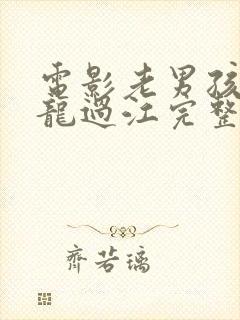 電影老男孩
龍過江完整
齊若璃